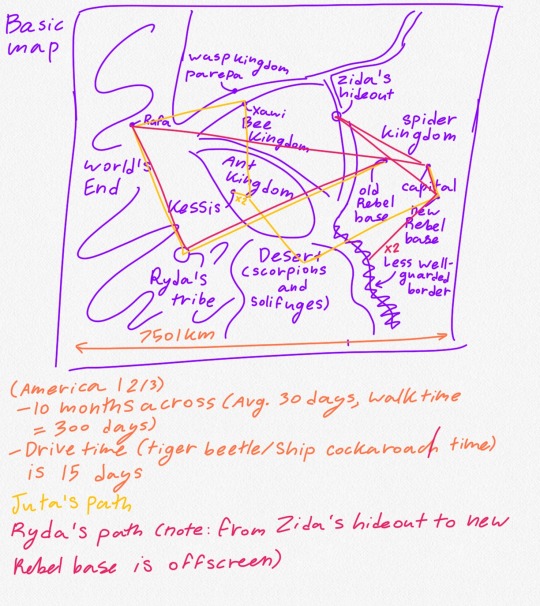 Basic
map
wasp kingdom
parepa
zida's
hideout
Rafa
xawi
Bee
kingdom
spider
kingdom
world's
End
Ant
kingdom
x2
Kessis
old
Rebel
base
capital
new
Rebel
base
x2
Less well-
guarded
border
Ryda's
tribe
Desert
(scorpions
and
solifuges)
7501km
(America 1 2/3)
-10 months across (Avg. 30 days, walk time
= 300 days)
-Drive time (tiger beetle/ship cockaroach time)
is 15 days
Juta's path
Ryda's path (note: from Zida's hideout to new
Rebel base is offscreen)